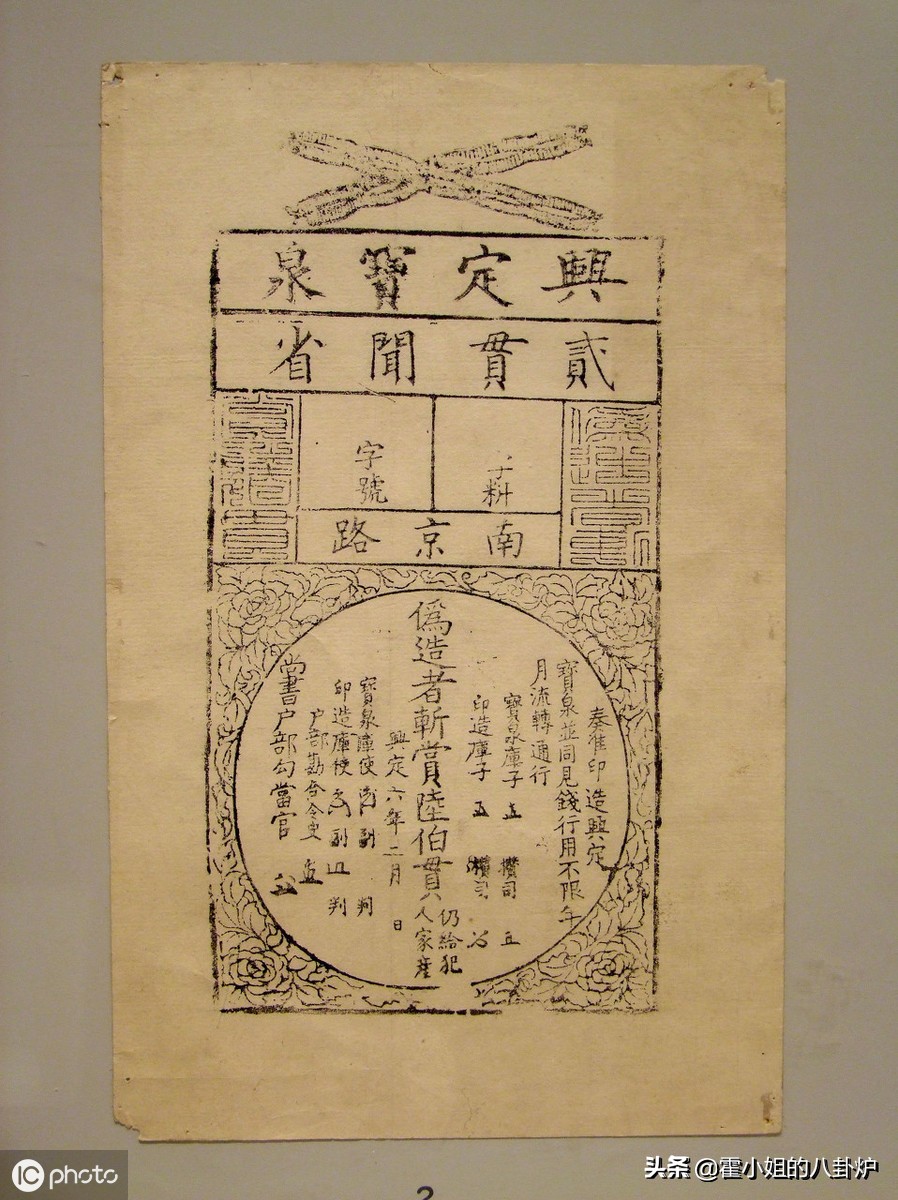 興定寶泉
貳貫聞省
字料
字號
南京路
奏准印造興定
寶泉並同見錢行用不限年
月流轉通行
寶泉庫子 攢司
印造庫子 攢司
偽造者斬賞陸伯貫
仍給犯
人家產
興定六年二月 日
寶泉庫使 副 判
印造庫使 副 判
戶部勘合令史
尚書戶部勾當官
iC photo
头条 @霍小姐的八卦炉
2